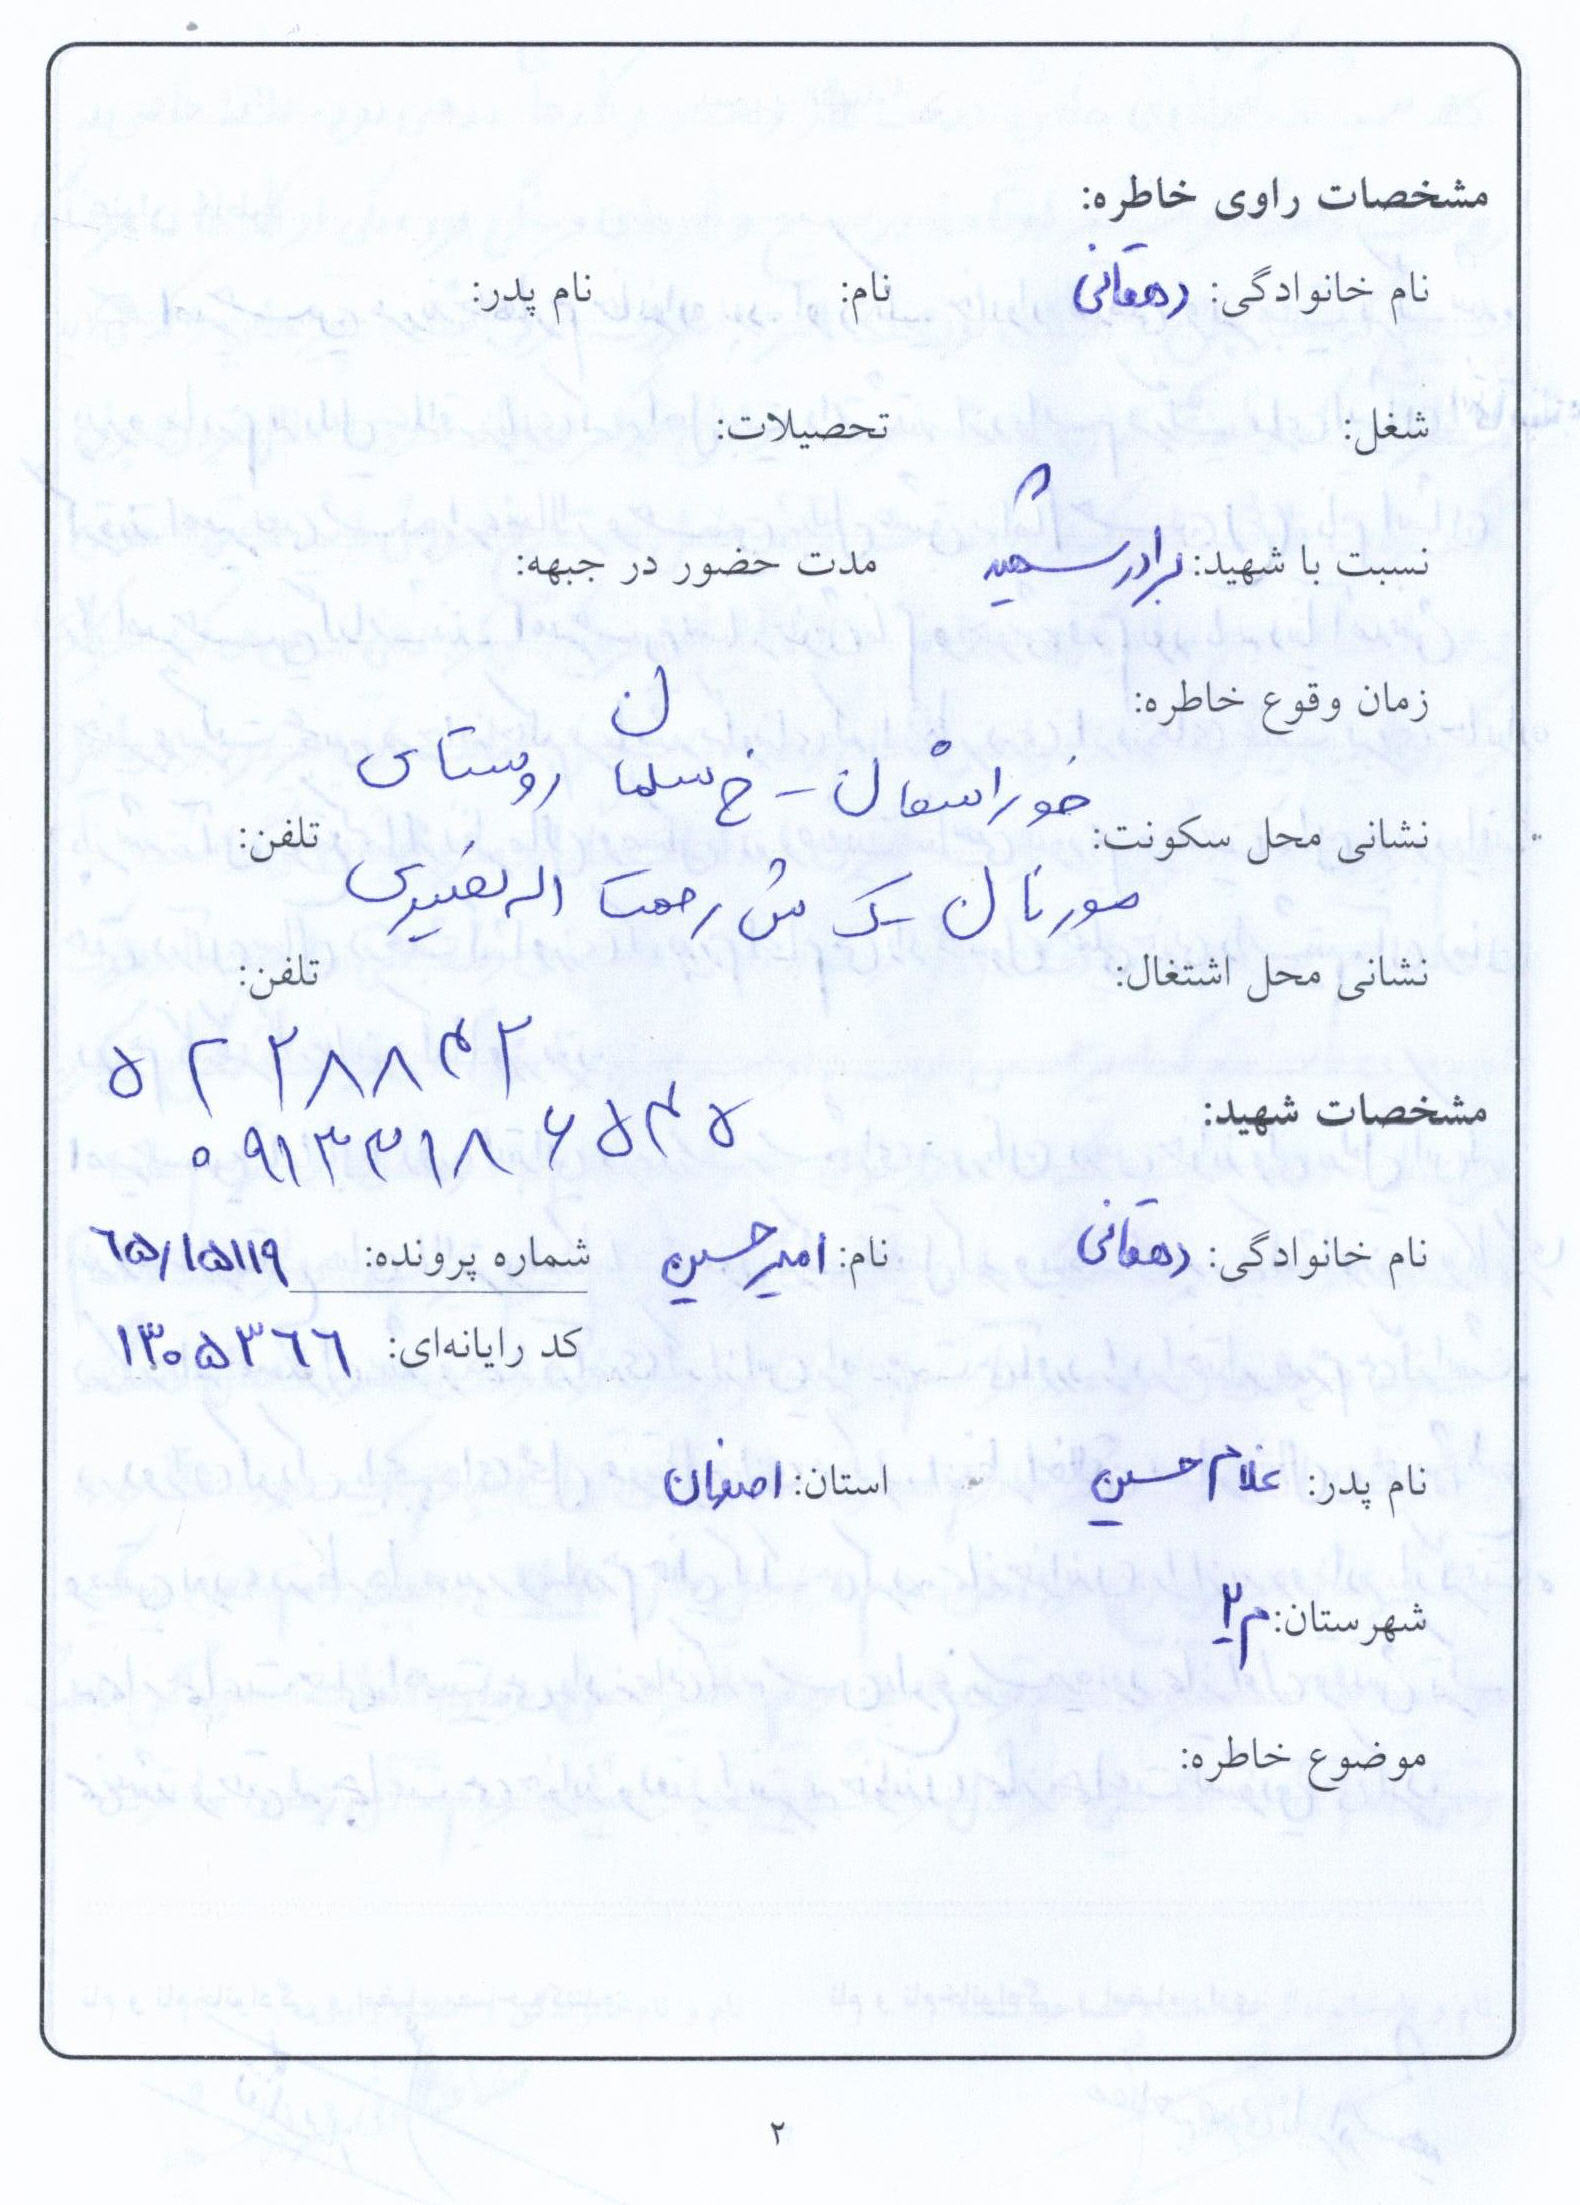 مشخصات راوی خاطره:
نام خانوادگی: دهقانی نام: نام پدر:
شغل: تحصیلات:
نسبت با شهید: برادر شهید مدت حضور در جبهه:
زمان وقوع خاطره:
خوراسفان - خ سلمان روستای
نشانی محل سکونت: تلفن:
ک ش رحمت اله
نشانی محل اشتغال: تلفن:
۵۲۲۸۸۴۲
۰۹۱۳۳۱۸۶۵۴۵
مشخصات شهید:
نام خانوادگی: دهقانی نام: امیرحسین شماره پرونده: ۶۵/۱۵۱۱۹
کد رایانه‌ای: ۱۳۰۵۳۶۶
نام پدر: غلامحسین استان: اصفهان
شهرستان: م۲
موضوع خاطره:
۲